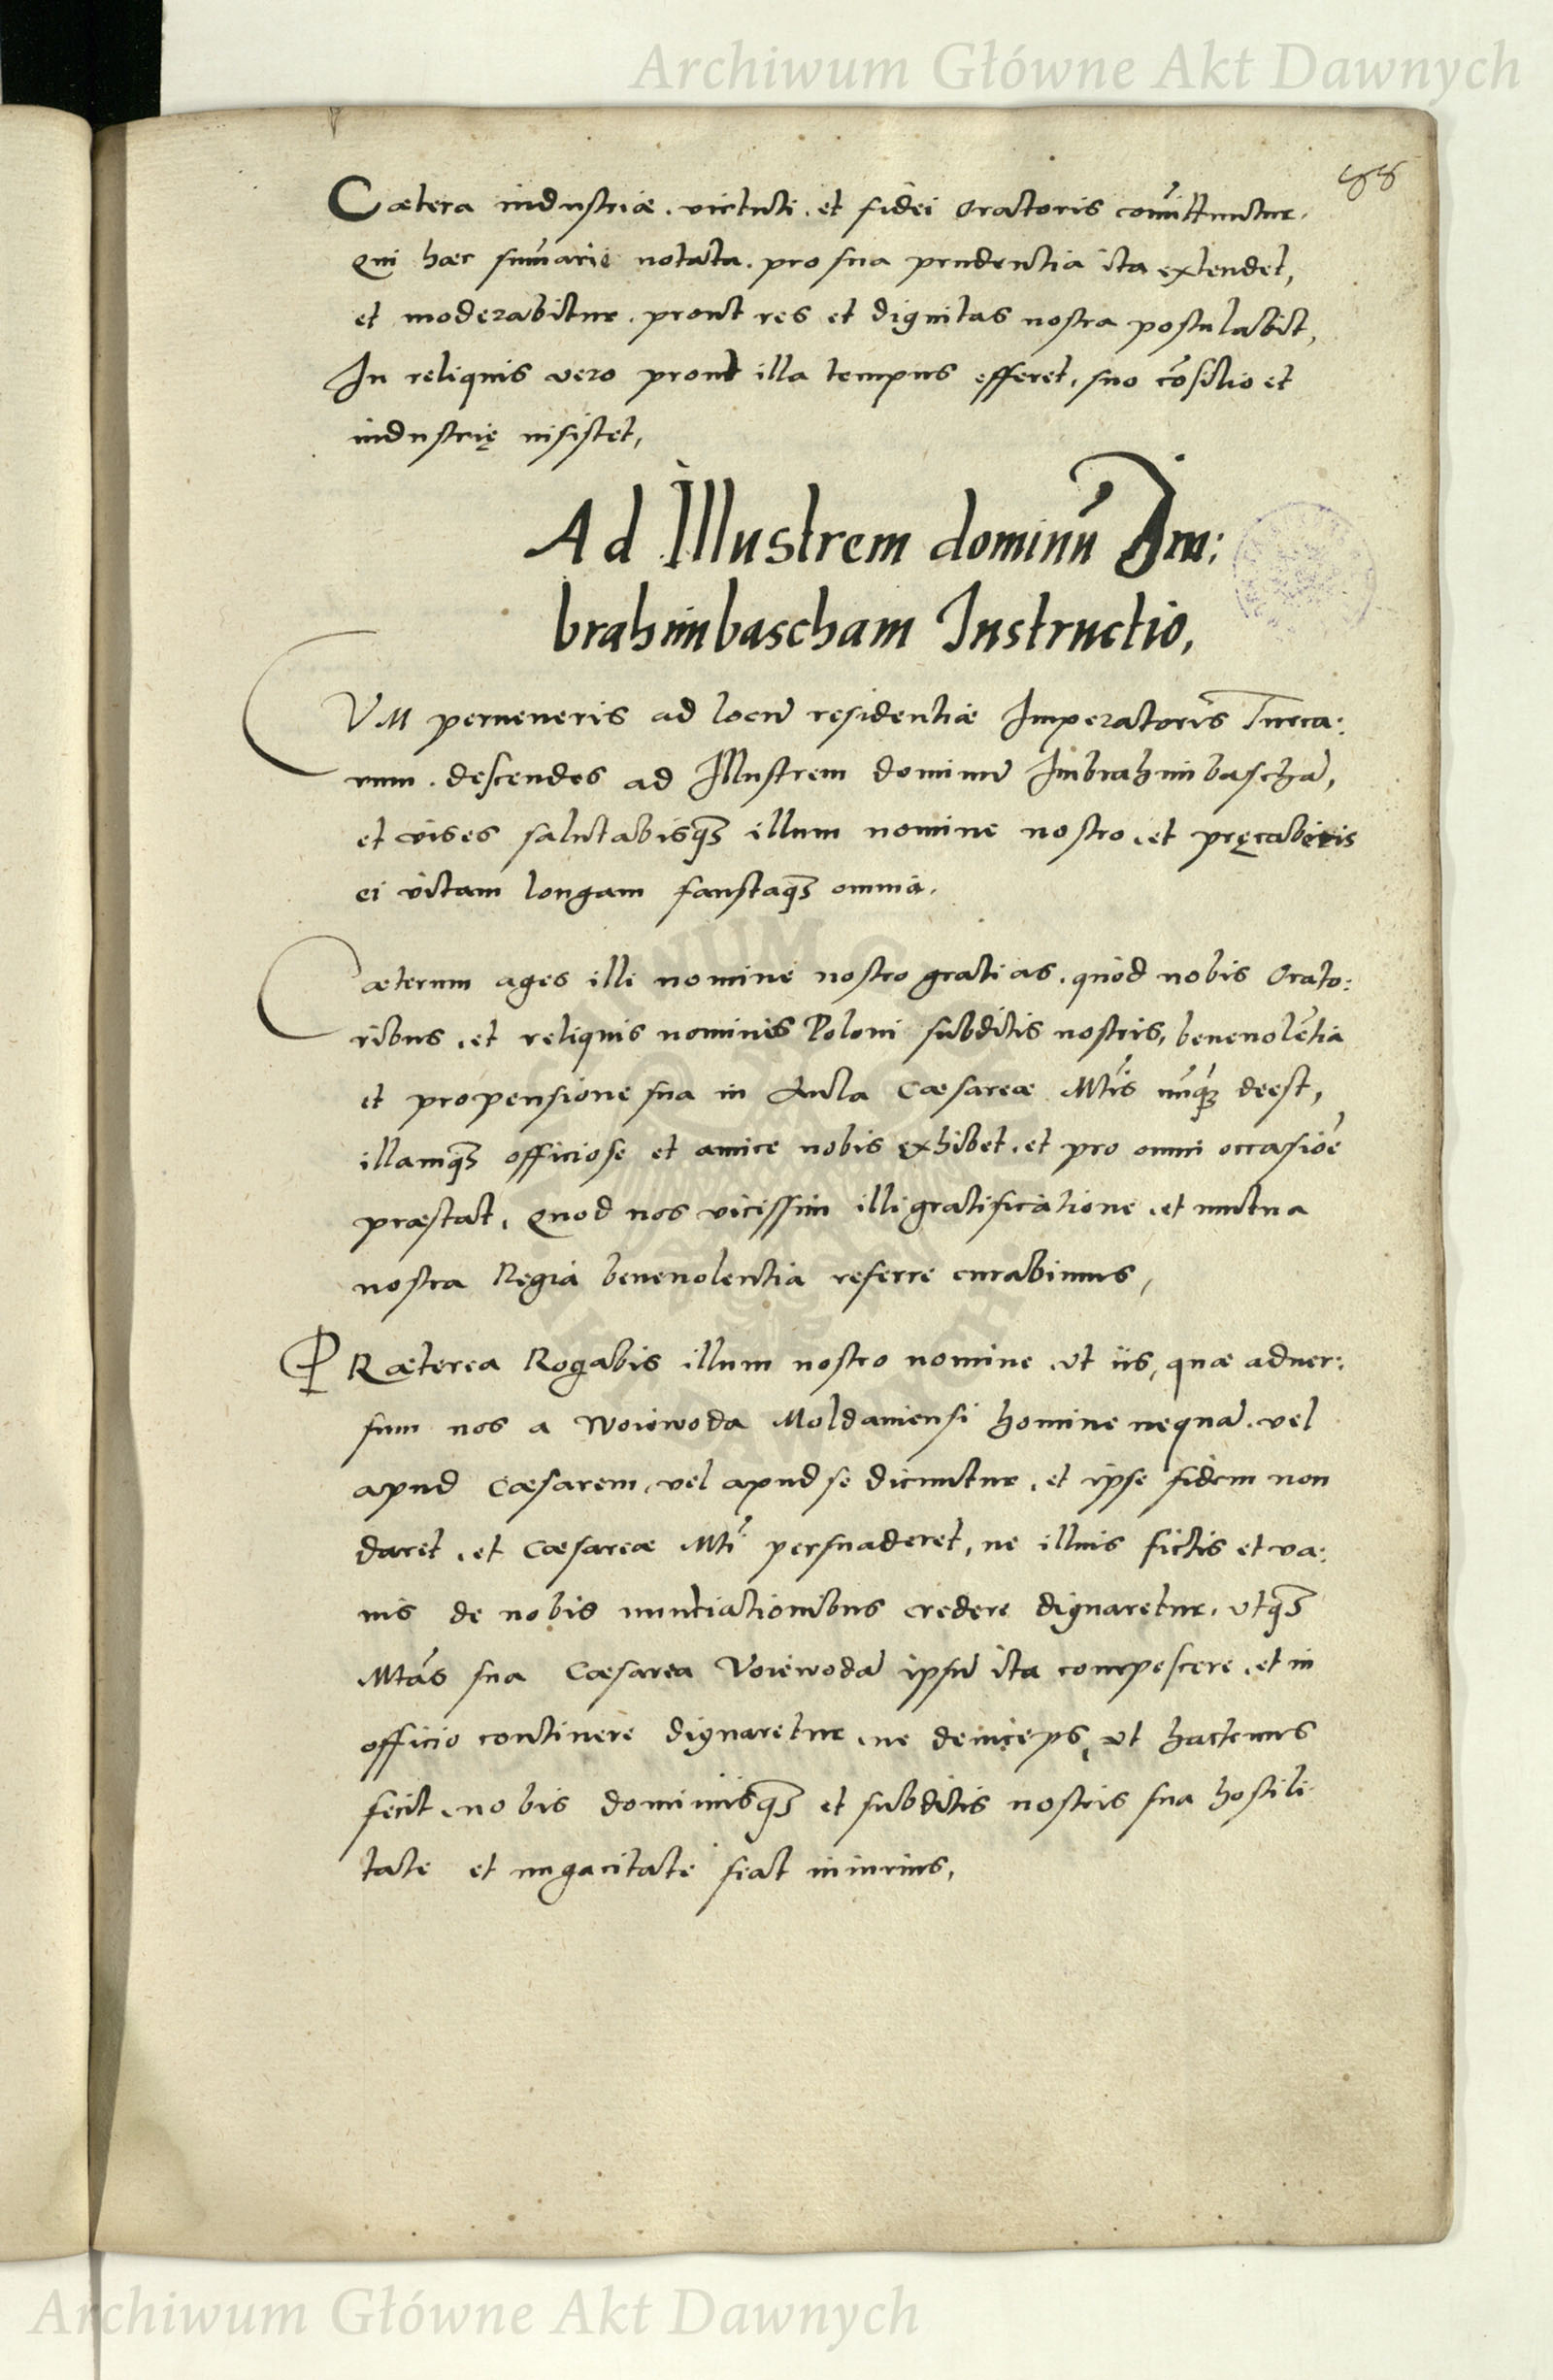 Archiwum Główne Akt Dawnych
88
Cætera industriæ. virtuti. et fidei Oratoris com̄ittuntur.
Qui hæc sum̄arie notata. pro sua prudentia ita extendet,
et moderabitur. prout res et dignitas nostra postulabit,
In reliquis vero prout illa tempus efferet, suo cōsilio et
industrię insistet,
Ad Illustrem dominū Im:
brahimbascham Instructio,
CVM perveneris ad locū residentiæ Imperatoris Turca:
rum. descendes ad Illustrem dominū Imbrahimbaschā,
et vises salutabisqȝ illum nomine nostro. et pręcaberis
ei vitam longam faustaqȝ omnia.
Cæterum ages illi nomine nostro gratias. quod nobis Orato:
ribus. et reliquis nominis Poloni subditis nostris, benevolētia
et propensione sua in Aula Cæsareæ Mtis nūqȝ deest,
illamqȝ officiose et amice nobis exhibet. et pro omni occasiōe
præstat. Quod nos vicissim illi gratificatione. et mutua
nostra Regia benevolentia referre curabimus,
PRæterea Rogabis illum nostro nomine. ut iis, quæ adver:
sum nos a Woiewoda Moldaviensi homine nequā. vel
apud Cæsarem, vel apud se dicuntur. et ipse fidem non
daret. et Cæsareæ Mti persuaderet, ne illius fictis et va:
nis de nobis nuntiationibus credere dignaretur. utqȝ
Mtas sua Cæsarea Voiewodā ipsū ita compescere. et in
officio continere dignaretur. ne deinceps, ut hactenus
fecit. nobis dominiisqȝ et subditis nostris sua hostili
tate et nugacitate fiat iniurius,
Archiwum Główne Akt Dawnych